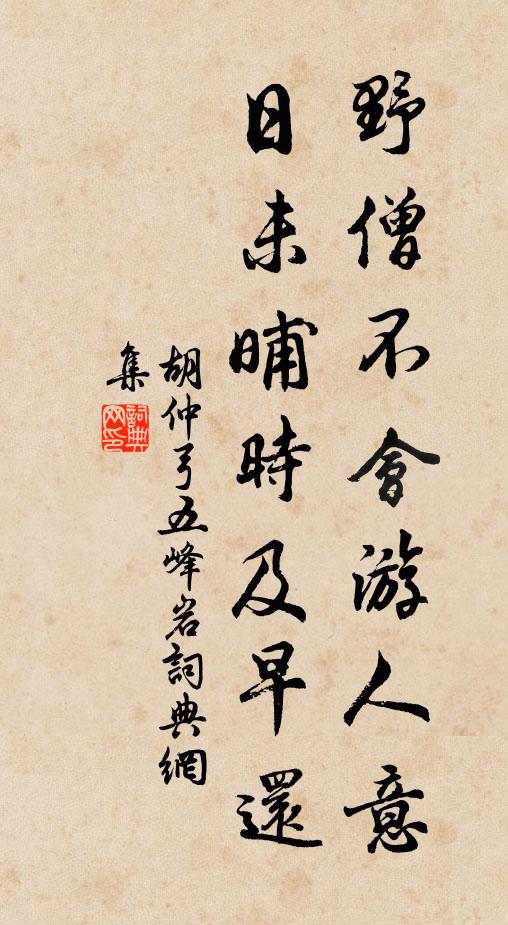 野僧不會游人意
日未晡時及早還
胡仲弓五峰岩詞典網
集
詞典
网印